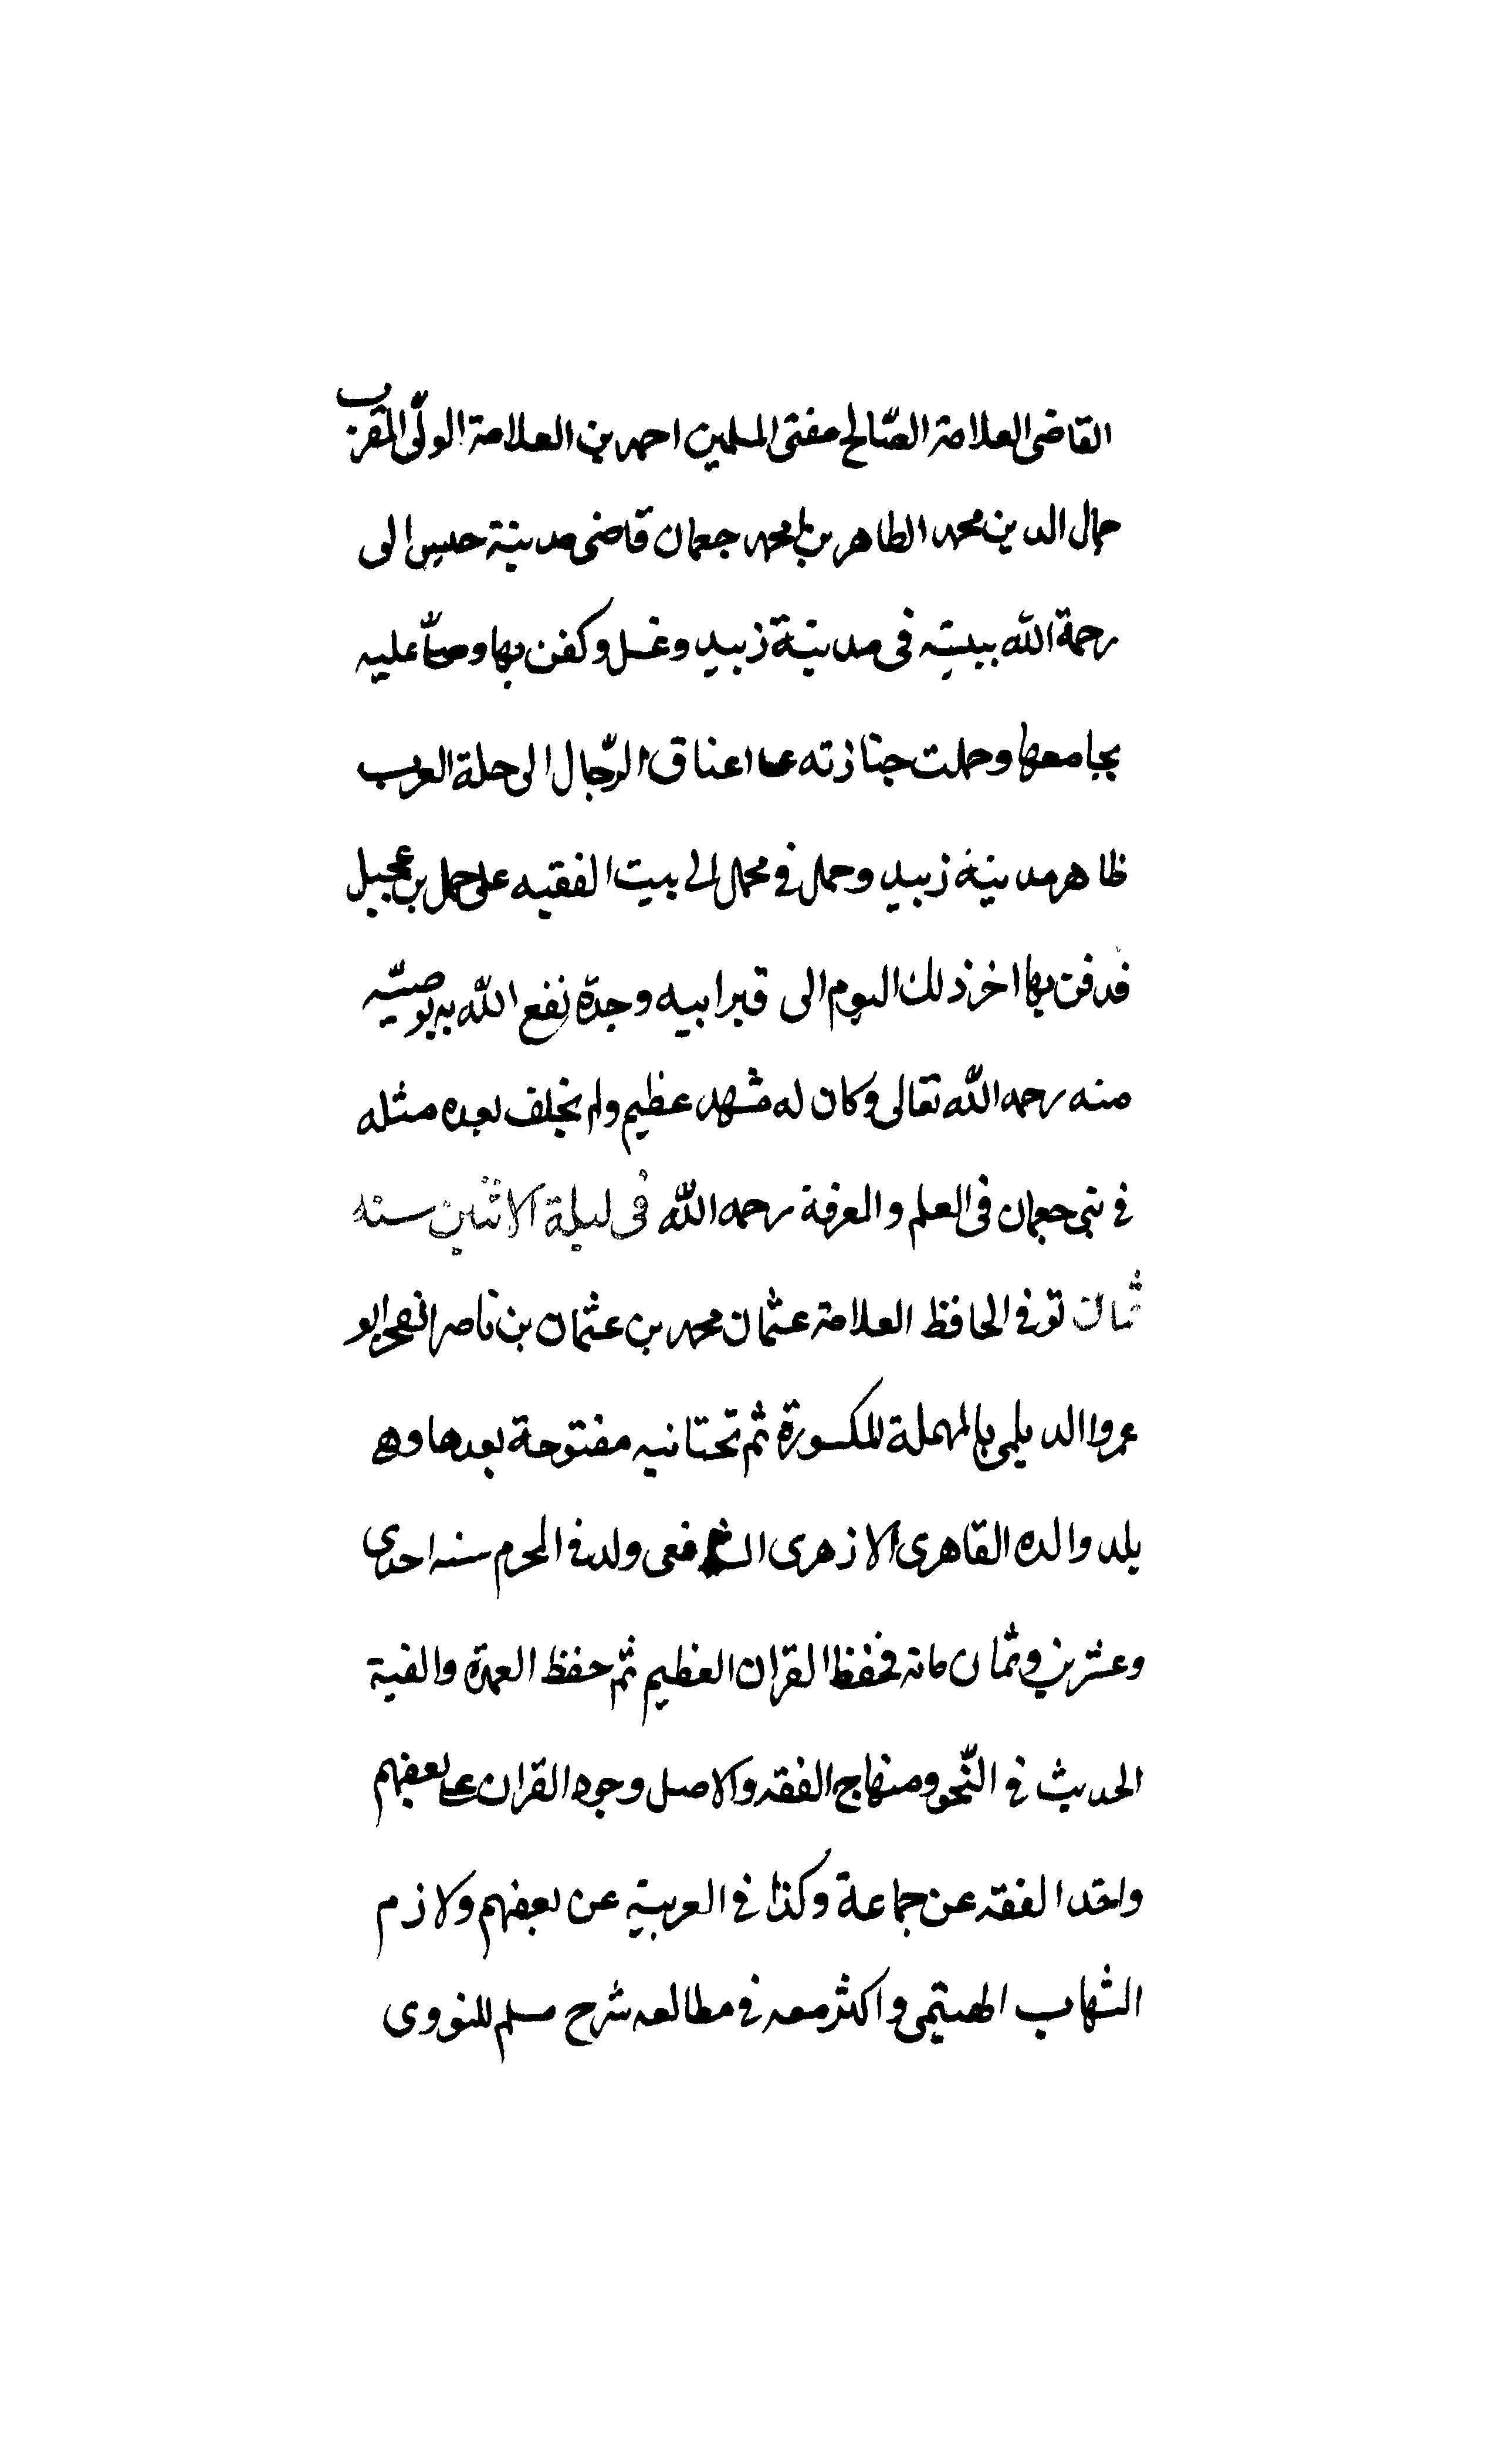 القاضى العلامة الصّالح مفتى المسلمين احمد بن العلامة الولّى المقرب
جمال الدين محمد الطاهر بن محمد جعمان قاضى مدينة حيس الى
رحمة الله ببيته فى مدينة زبيد وغسل وكفن بها وصلّى عليه
بجامعها وحملت جنازته على اعناق الرّجال الى حلة العرب
ظاهر مدينة زبيد وحمل فى محمل الى بيت الفقيه على جمل بن عجيل
فدفن بها اخر ذلك اليوم الى قبر ابيه وجدّه نفع الله به بوصيّه
منه رحمه الله تعالى وكان له مشهد عظيم ولم يخلف بعده مثله
فى بنى جعمان فى العلم والمعرفة رحمه الله فى ليلة الاثنين سنه
ثمان توفى الحافظ العلامة عثمان محمد بن عثمان بن ناصر الفخر ابو
عمرو الديلمى بالمهملة المكسورة ثم تحتانيه مفتوحة بعدها وهى
بلد والده القاهرى الازهرى الشافعى ولد فى المحرم سنه احدى
وعشرين وثمان مائه فحفظ القران العظيم ثم حفظ العمدة والفية
الحديث فى النّحو ومنهاج الفقه والاصل وجود القران على بعضهم
واخذ الفقه عن جماعة وكذا فى العربية عن بعضهم ولازم
الشهاب الهيتمى واكثر معه فى مطالعه شرح مسلم للنووى